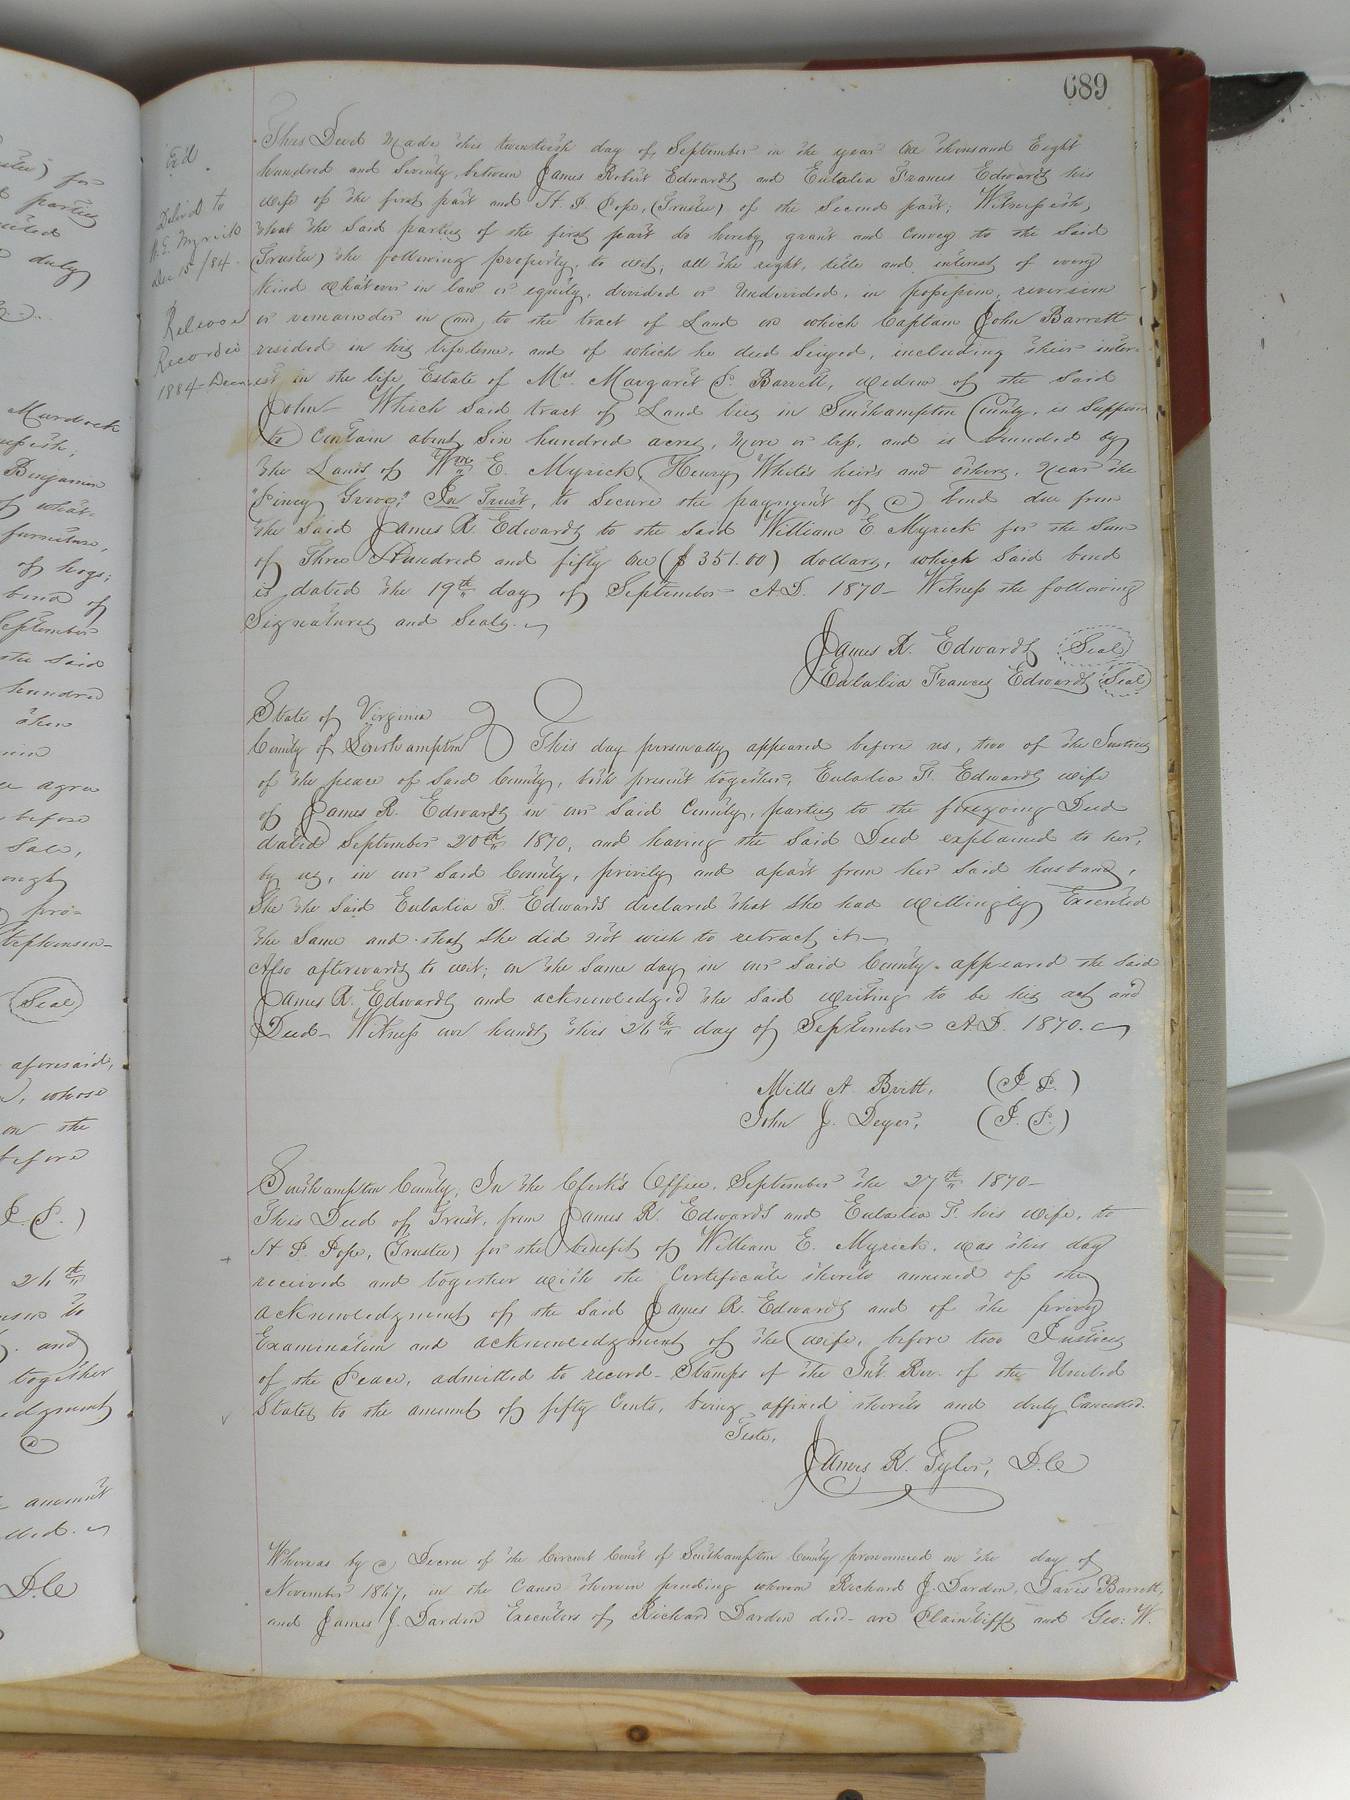 689
Ex'd
Deliv'd to
W. E. Myrick
Dec 15 /84
Release
Recorded
1884 - Decm
This Deed Made this twentieth day of September in the year One thousand Eight
hundred and Seventy, between James Robert Edwards and Eulalia Frances Edwards his
wife of the first part and H. P. Pope, (Trustee) of the Second part; Witnesseth,
that the Said parties of the first part do hereby grant and Convey to the Said
(Trustee) the following property, to wit, all the right, title and interest of every
Kind whatever in law or equity, divided or Undivided, in possession, reversion
or remainder in and to the tract of Land on which Captain John Barrett
resided in his lifetime, and of which he died Seized, including their inter-
est in the life Estate of Mrs. Margaret P. Barrett, widow of the Said
John - Which Said tract of Land lies in Southampton County, is Suppose
to Contain about Six hundred acres, More or less, and is bounded by
the Lands of Wm E. Myrick, Henry White's heirs and others, near the
"Piney Grove," In Trust, to Secure the payment of a bond due from
the Said James R. Edwards to the Said William E. Myrick for the Sum
of Three Hundred and fifty One ($351.00) dollars, which Said bond
is dated the 19th day of September A.D. 1870 - Witness the following
Signatures and Seals.
James R. Edwards (Seal)
Eulalia Frances Edwards (Seal)
State of Virginia
County of Southampton } This day personally appeared before us, two of the Justices
of the peace of Said County, both present together, Eulalia F. Edwards wife
of James R. Edwards in our Said County, parties to the foregoing Deed
dated September 20th 1870, and having the Said Deed explained to her,
by us, in our Said County, privily and apart from her Said husband,
She the Said Eulalia F. Edwards declared that She had willingly Executed
the Same and that She did not wish to retract it
Also afterwards to wit; on the Same day in our Said County appeared the Said
James R. Edwards and acknowledged the Said writing to be his act and
Deed - Witness our hands this 26th day of September A.D. 1870.
Mills A. Britt, (J. P.)
John J. Deyer, (J. P.)
Southampton County, In the Clerk's Office, September the 27th 1870 -
This Deed of Trust, from James R. Edwards and Eulalia F. his wife, to
H P. Pope, (Trustee) for the benefit of William E. Myrick, was this day
received and together with the Certificate thereto annexed of the
acknowledgment of the Said James R. Edwards and of the privy
Examination and acknowledgment of the wife, before two Justices
of the Peace, admitted to record - Stamps of the Int. Rev. of the United
States to the amount of fifty Cents, being affixed thereto and duly Cancelled.
Teste,
James R. Tyler, D.C
Whereas by a Decree of the Circuit Court of Southampton County pronounced on the day of
November 1867, in the Cause therein pending wherein Richard J. Darden, Davis Barrett,
and James J. Darden Executors of Richard Darden decd - are Plaintiffs and Geo: W.
parties
duly
Murdock
Benjamin
of what-
furniture,
of hogs;
bond of
September
the Said
hundred
agree
before
Sale,
pro-
Stephenson
(Seal)
aforesaid,
whose
on the
before
J. P.)
26th
and
together
amount
D.C